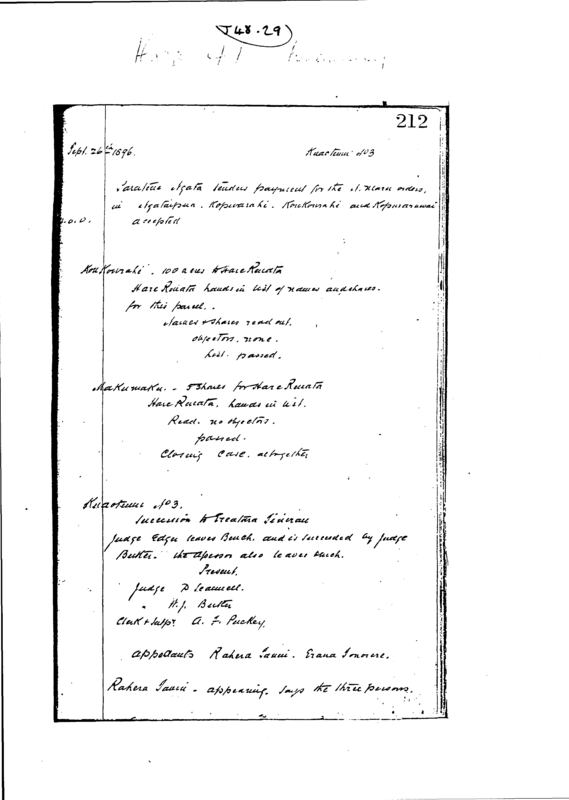 J48.29
212
Sept. 26th 1896. Kuaotunu No 3
payment for the orders,
in Kopuarahi. Koukourahi and
accepted
Koukourahi. 100 acres to Hare Renata
Hare Renata hands in list of names and shares.
for this parcel.
Names & shares read out.
objectors. none.
List. passed.
Makumaku. - 5 Shares for Hare Renata
Hare Renata. hands in list.
Read. no objectors.
passed.
Closing case. altogether
Kuaotunu No 3.
Succession to
Judge Edger leaves Bench. and is succeeded by Judge
Butler. The Assessor also leaves bench.
Present.
Judge D Scannell.
" H.J. Butler
Clerk & Intpr. A. F. Puckey.
Appellants Rahera
Rahera - appearing. says the three persons.